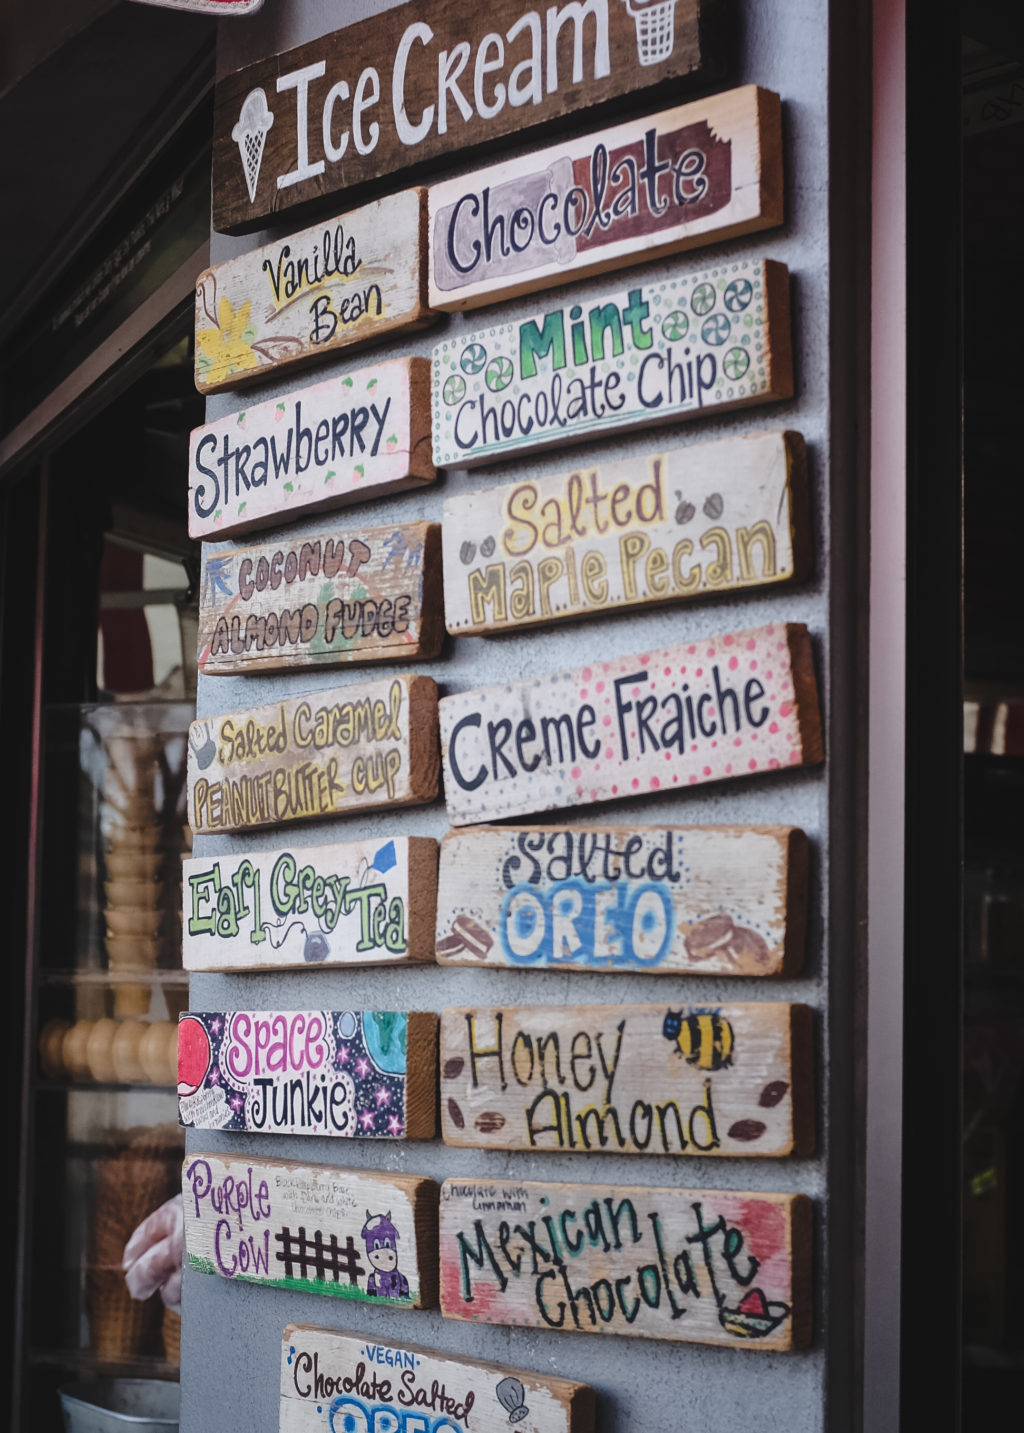 Ice Cream
Vanilla
Bean
Chocolate
Strawberry
Mint
Chocolate Chip
Coconut
Almond Fudge
Salted
Maple Pecan
Salted Caramel
Peanut Butter Cup
Creme Fraiche
Earl Grey Tea
Salted
OREO
Space
Junkie
Honey
Almond
Purple
Cow
Black Raspberry Base
with Dark and White
Chocolate Chips
Chocolate with
Cinnamon
Mexican
Chocolate
VEGAN
Chocolate Salted
OREO